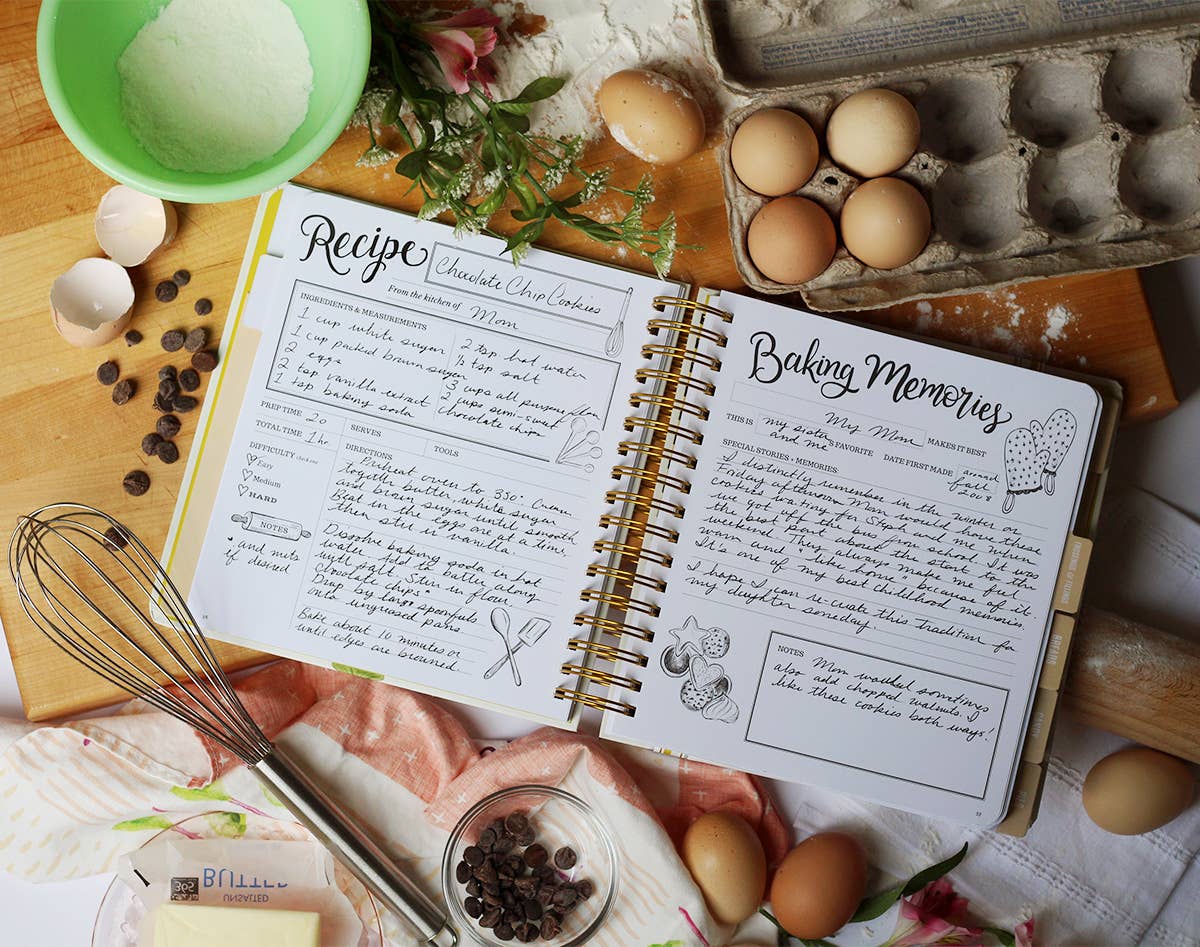 Recipe
Chocolate Chip Cookies
From the kitchen of Mom
INGREDIENTS & MEASUREMENTS
1 cup white sugar
1 cup packed brown sugar
2 eggs
2 tsp vanilla extract
1 tsp baking soda
2 tsp hot water
½ tsp salt
3 cups all purpose
2 cups semi-sweet
chocolate chips
PREP TIME 20
SERVES
TOOLS
TOTAL TIME 1 hr
DIFFICULTY check one
Easy
Medium
HARD
NOTES
* and nuts
if desired
DIRECTIONS
Preheat oven to 350° Cream
together butter, white sugar
and brown sugar until smooth
Beat in the eggs one at a time,
then stir in vanilla.
Dissolve baking soda in hot
water, add to batter along
with salt. Stir in flour,
chocolate chips*
Drop by large spoonfuls
onto ungreased pans.
Bake about 10 minutes or
until edges are browned.
Baking Memories
My Mom MAKES IT BEST
THIS IS my sister
and me 'S FAVORITE
DATE FIRST MADE around
fall
2008
SPECIAL STORIES + MEMORIES:
I distinctly remember in the winter or
Friday afternoons Mom would have these
cookies waiting for Steph and me when
we got off the bus from school. It was
the best part about the start to the
weekend. They always make me feel
warm and "like home" because of it.
It's one of my best childhood memories.
I hope I can re-create this tradition for
my daughter someday.
NOTES Mom would sometimes
also add chopped walnuts. I
like these cookies both ways!
365
BUTTER
UNSALTED